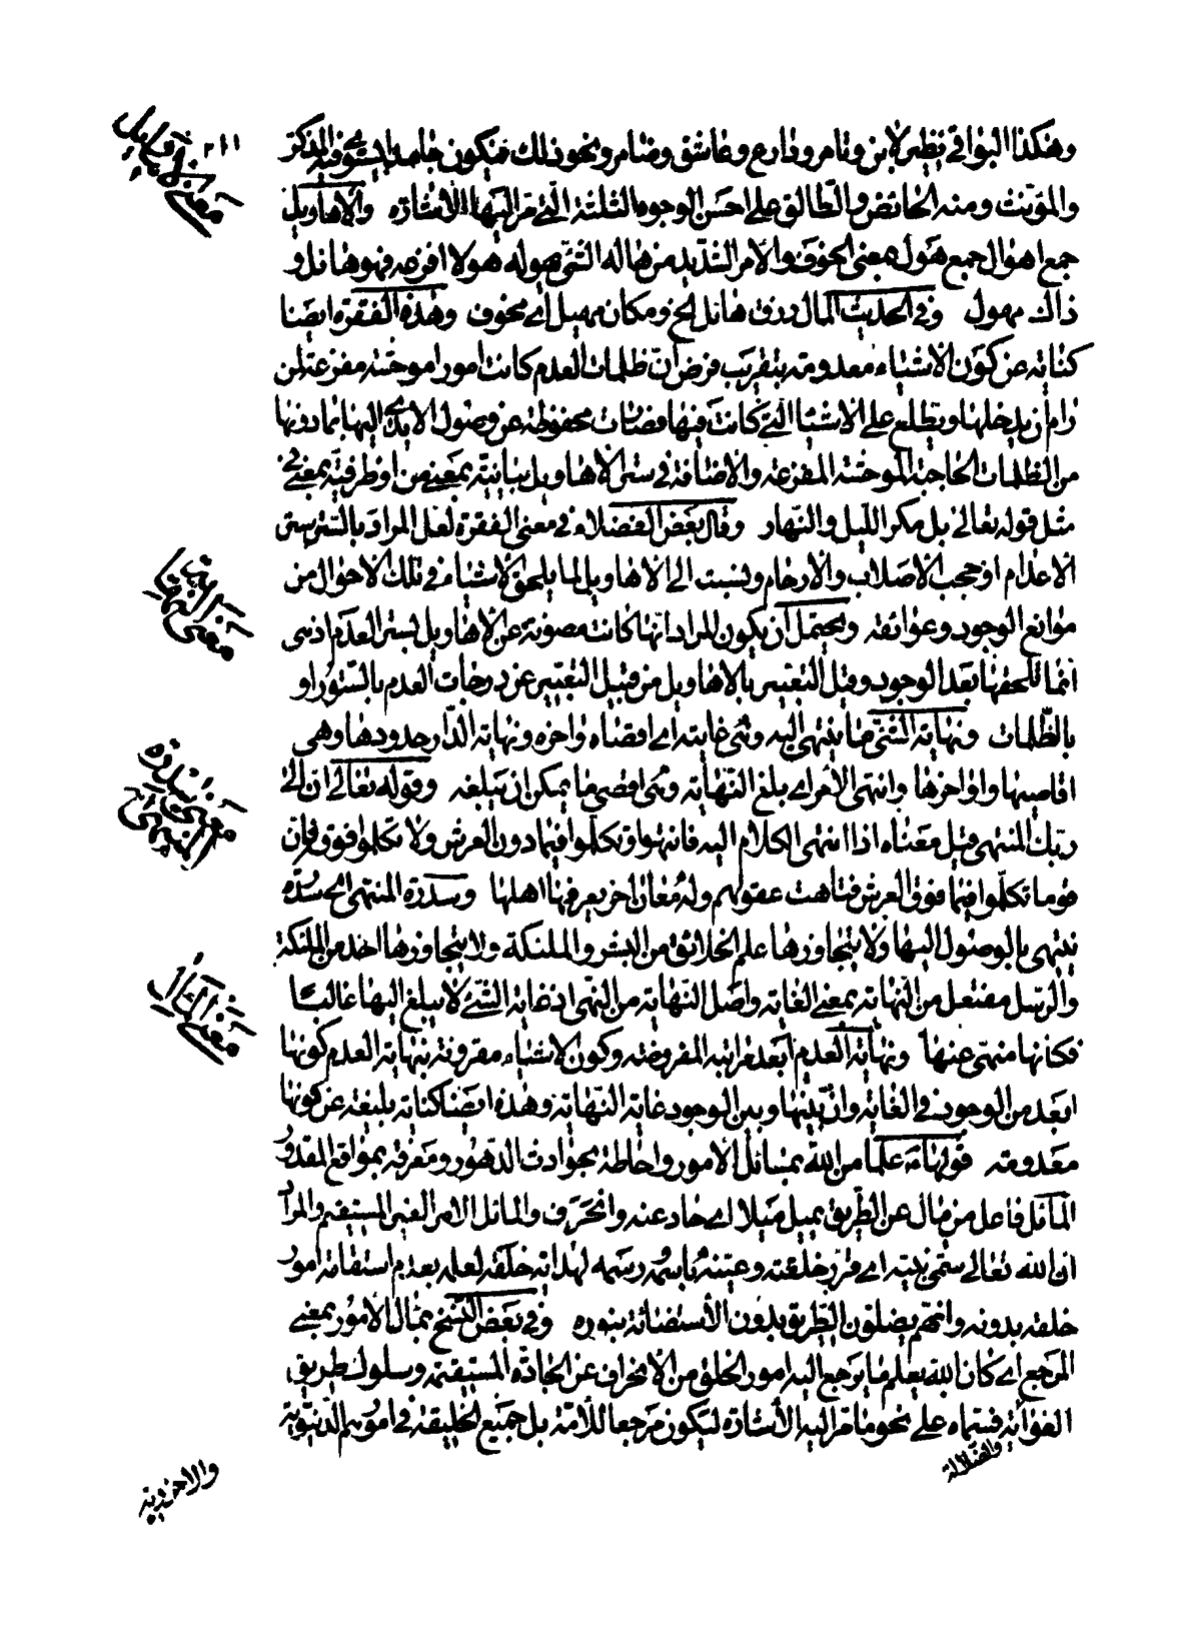 وهكذا البواقي نظير لابن وتامر ودارع وعاشق وضامر ونحو ذلك فيكون جامدا يستوي فيه المذكر
والمؤنث ومنه الحائض والطالق على احسن الوجوه الثلثة التي مر اليها الأشارة والأهاويل
جمع اهوال جمع هول بمعنى الخوف والأمر الشديد من هاله الشئ يهوله هولا افزعه فهو هائل و
ذاك مهول وفي الحديث المال ورزق هائل الخ ومكان مهيل اي مخوف وهذه الفقرة ايضا
كناية عن كون الاشياء معدومة بتقريب فرض ان ظلمات العدم كانت امورا موحشة مفزعة لمن
رام ان يدخلها ويطلع على الاشياء التي كانت فيها فصارت محفوظة عن وصول الايدي اليها بما دونها
من الظلمات الحاجبة الموحشة المفزعة والاضافة في ستر الاهاويل بيانية بمعنى من او ظرفية بمعنى في
مثل قوله تعالى بل مكر الليل والنهار وقال بعض الفضلاء في معنى الفقرة لعل المراد بالستر ستر
الاعدام او حجب الاصلاب والارحام ونسبت الى الاهاويل لما يلحق الاشياء في تلك الاحوال من
موانع الوجود وعوائقه ويحتمل ان يكون المراد انها كانت مصونة عن الاهاويل بستر العدم اذ هي
انما تلحقها بعد الوجود وقيل التعبير بالاهاويل من قبيل التعبير عن درجات العدم بالستور او
بالظلمات ونهاية الشئ ما ينتهي اليه وهي غايته اي اقصاه واخره ونهاية الدار حدودها وهي
اقاصيها واواخرها وانتهى الأمر اي بلغ النهاية وهي اقصى ما يمكن ان يبلغه وقوله تعالى ان الى
ربك المنتهى قيل معناه اذا انتهى الكلام اليه فانتهوا وتكلموا فيما دون العرش ولا تكلموا فوق فان
قوما تكلموا فيما فوق العرش فتاهت عقولهم وله معان اخر يعرفها اهلها وسدرة المنتهى اي سدرة
ينتهي بالوصول اليها ولا يتجاوزها علم الخلائق من البشر والملئكة ولا يتجاوزها احد من الملئكة
والرسل مفتعل من النهاية بمعنى الغاية واصل النهاية من النهي اذ غاية الشئ لا يبلغ اليها غالبا
فكانها منهي عنها ونهاية العدم ابعد مراتبه المفروضة وكون الاشياء مقرونة بنهاية العدم كونها
ابعد من الوجود في الغاية وان بينها وبين الوجود غاية النهاية وهذه ايضا كناية بليغة عن كونها
معدومة قولها ع علما من الله بمسائل الأمور واحاطة بحوادث الدهور ومعرفة بمواقع المقدور
المائل فاعل من مال عن الطريق يميل ميلا اي حاد عنه وانحرف والمائل الامر الغير المستقيم والمراد
ان الله تعالى سمى نبيه اي قرر خلقته وعينه باسمه ورسمه لهداية خلقه لعلمه بعدم استقامة امور
خلقه بدونه وانهم يضلون الطريق بدون الأستضائة بنوره وفي بعض النسخ بمآل الأمور بمعنى
المرجع اي كان الله يعلم ما يرجع اليه امور الخلق من الانحراف عن الجادة المستقيمة وسلوك طريق
الغواية فسماه على نحو ما مر اليه الأشارة ليكون مرجعا للأمة بل جميع الخليقة في امورهم الدنيوية
والضلالة
والاخروية
١١٢
معنى الأهاويل
معنى النهاية
معنى سدرة
المنتهى
معنى المآئل